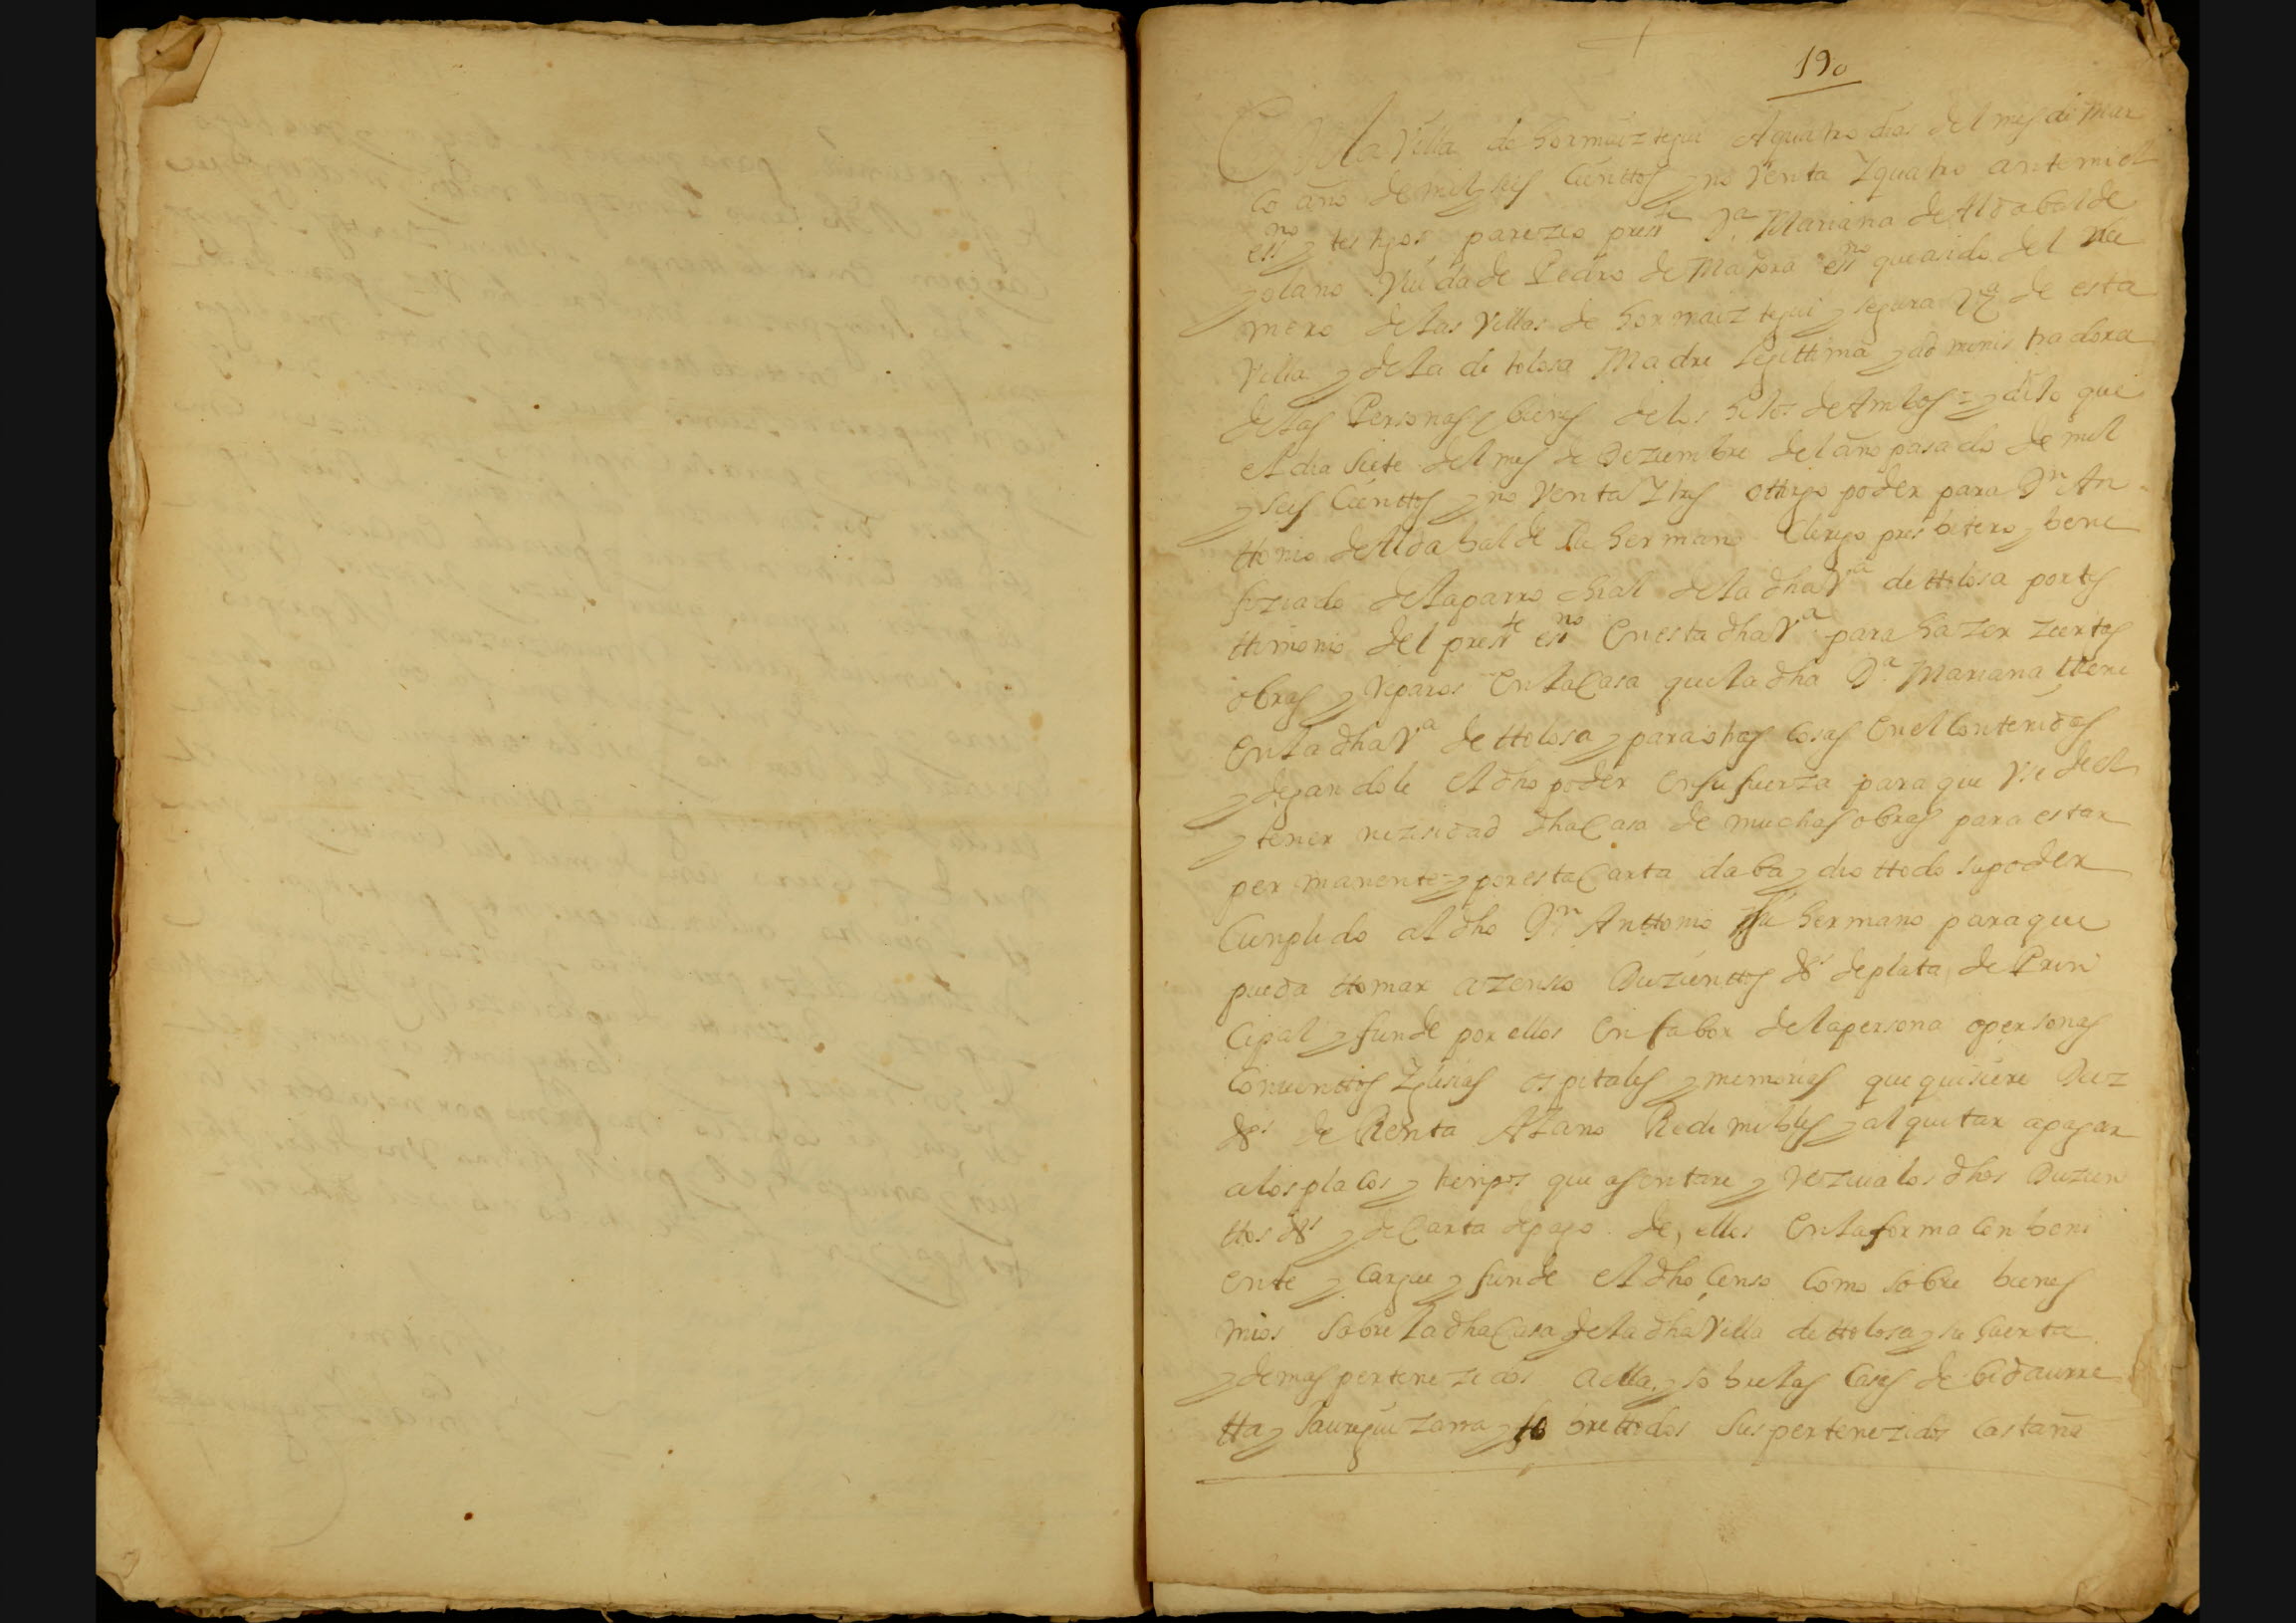 190
En la Villa de hormaiztegui A quatro dias del mes de Mar
co año de mil y seis Cienttos y no Venta Y quatro ante mi el
essno y testigos parezio preste Da Mariana de Aldabalde
y olano Viuda de Pedro de Mayora essno que a sido del nu
mero de las Villas de hormaiztegui y segura Vza de esta
Villa y de la de tolosa Madre legittima y ad monis tradora
de las Personas y bienes de los hijos de Ambos = y dijo que
el dia siete del mes de Deziembre del año pasado de mil
y seis Cienttos y no Venta Y tres ottorgo poder para Dn An
ttonio de Aldabalde su hermano Clerigo presbitero y bene
fiziado de la parro chial de la dha Va de ttolosa por tes
ttimonio del preste essno En esta dha Va para hazer ziertas
obras y Reparos En la Casa que la dha Da Mariana ttiene
En la dha Va de ttolosa y para otras Cosas En el Contenidas
y dejandole el dho poder En su fuerza para que Use de el
y tener nezisidad dha Casa de muchas obras para estar
per manente = y por esta Carta daba y dio ttodo su poder
Cumplido al dho Dn Anttonio su hermano para que
pueda ttomar a zenso Duzienttos ds de plata de Prin
Cipal y funde por ellos En fabor de la persona o personas
Conventtos Yglesias ospitales y memorias que quisiere Diez
ds de Renta Al año Redimibles y al quitar a pagar
a los plaços y tiempos que asentare y Reziva los dhos Duzien
ttos ds y de Carta de pago de ellos En la forma Conbeni
ente y Cargue y funde el dho Censo Como sobre bienes
mios sobre la dha Casa de la dha Villa de ttolosa y su huerta
y demas pertenezidos a ella y sobre las Casas de bidaurre
tta y Jaureguizarra y so bre ttodos sus pertenezidos Castaña